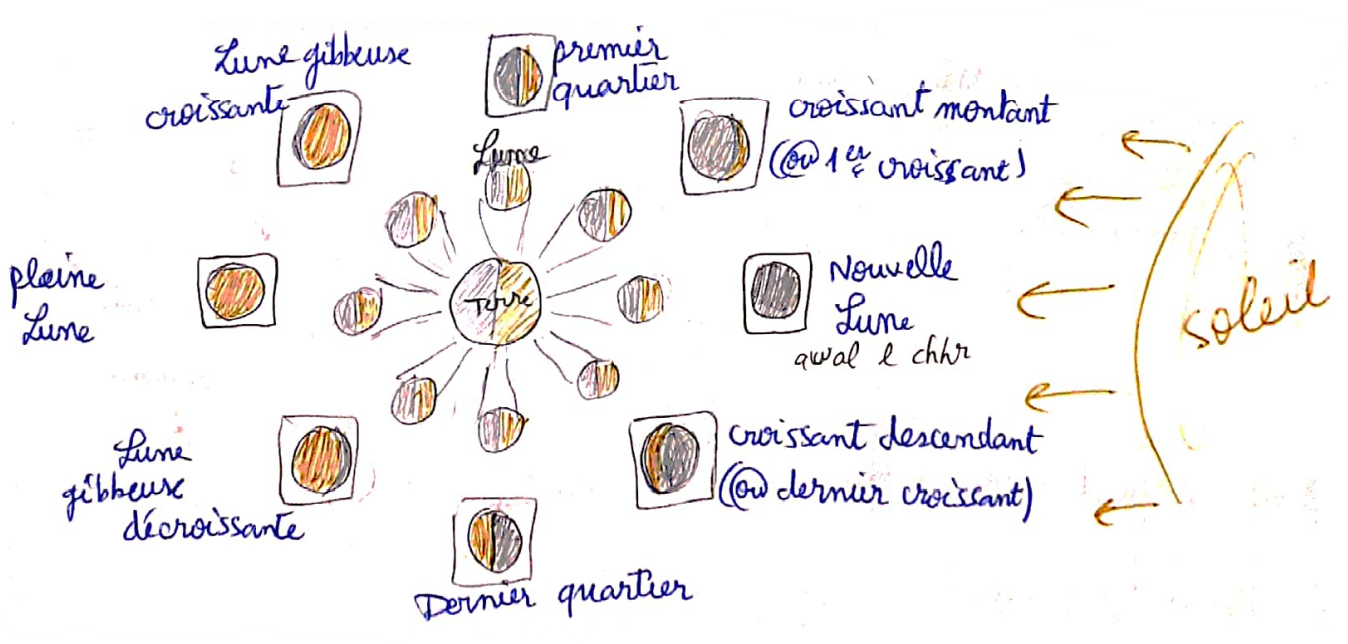 Lune gibbeuse
croissante
premier
quartier
croissant montant
(ou 1er croissant)
Lune
pleine
Lune
Terre
Nouvelle
Lune
awal l chhr
soleil
Lune
gibbeuse
décroissante
croissant descendant
(ou dernier croissant)
Dernier quartier